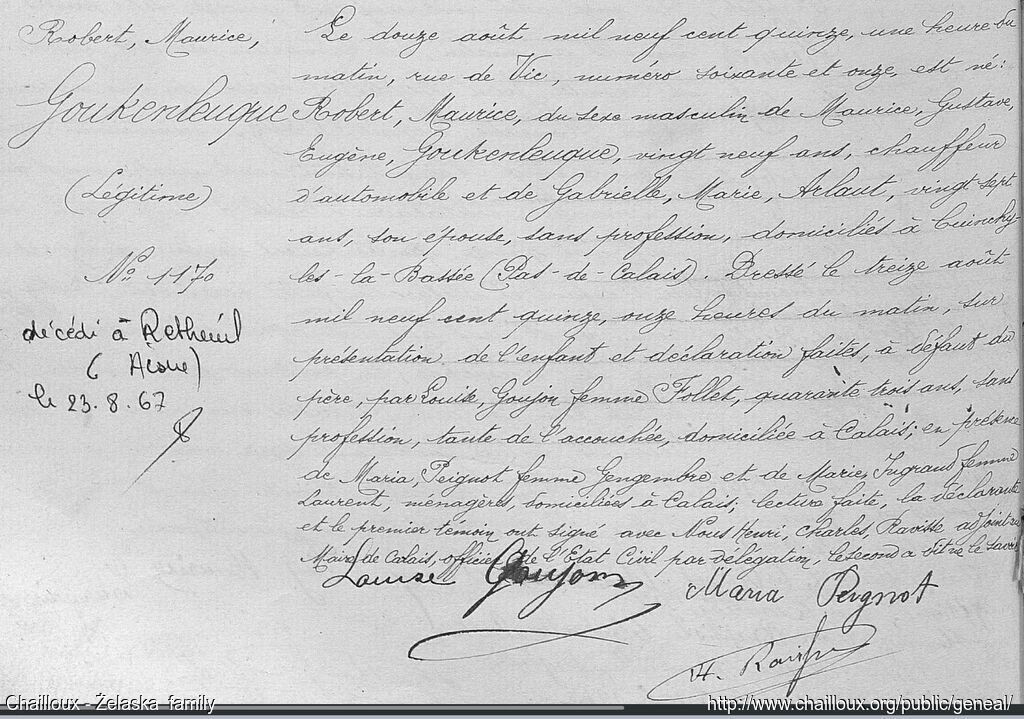 Robert, Maurice,
Goukenleuque
(Légitime)
No 1170
décédé à Retheuil
(Aisne)
le 23.8.67
Le douze août mil neuf cent quinze, une heure du
matin, rue de Vic, numéro soixante et onze, est né:
Robert, Maurice, du sexe masculin de Maurice, Gustave,
Eugène, Goukenleuque, vingt neuf ans, chauffeur
d'automobile et de Gabrielle, Marie, Arlaut, vingt sept
ans, son épouse, sans profession, domiciliés à Cuinchy-
les-la-Bassée (Pas-de-Calais). Dressé le treize août
mil neuf cent quinze, onze heures du matin, sur
présentation de l'enfant et déclaration faites, à défaut du
père, par Louise, Goujon femme Follet, quarante trois ans, sans
profession, tante de l'accouchée, domiciliée à Calais; en présence
de Maria, Peignot femme Gengembre et de Marie, Ingrand femme
Laurent, ménagères, domiciliées à Calais; lecture faite, la déclarante
et le premier témoin ont signé avec Nous Henri, Charles, Ravisse adjoint au
Maire de Calais, officier de l'Etat Civil par délégation, le second a dit ne le savoir
Louise Goujon
Maria Peignot
H. Ravisse
Chailloux - Żelaska family
http://www.chailloux.org/public/geneal/